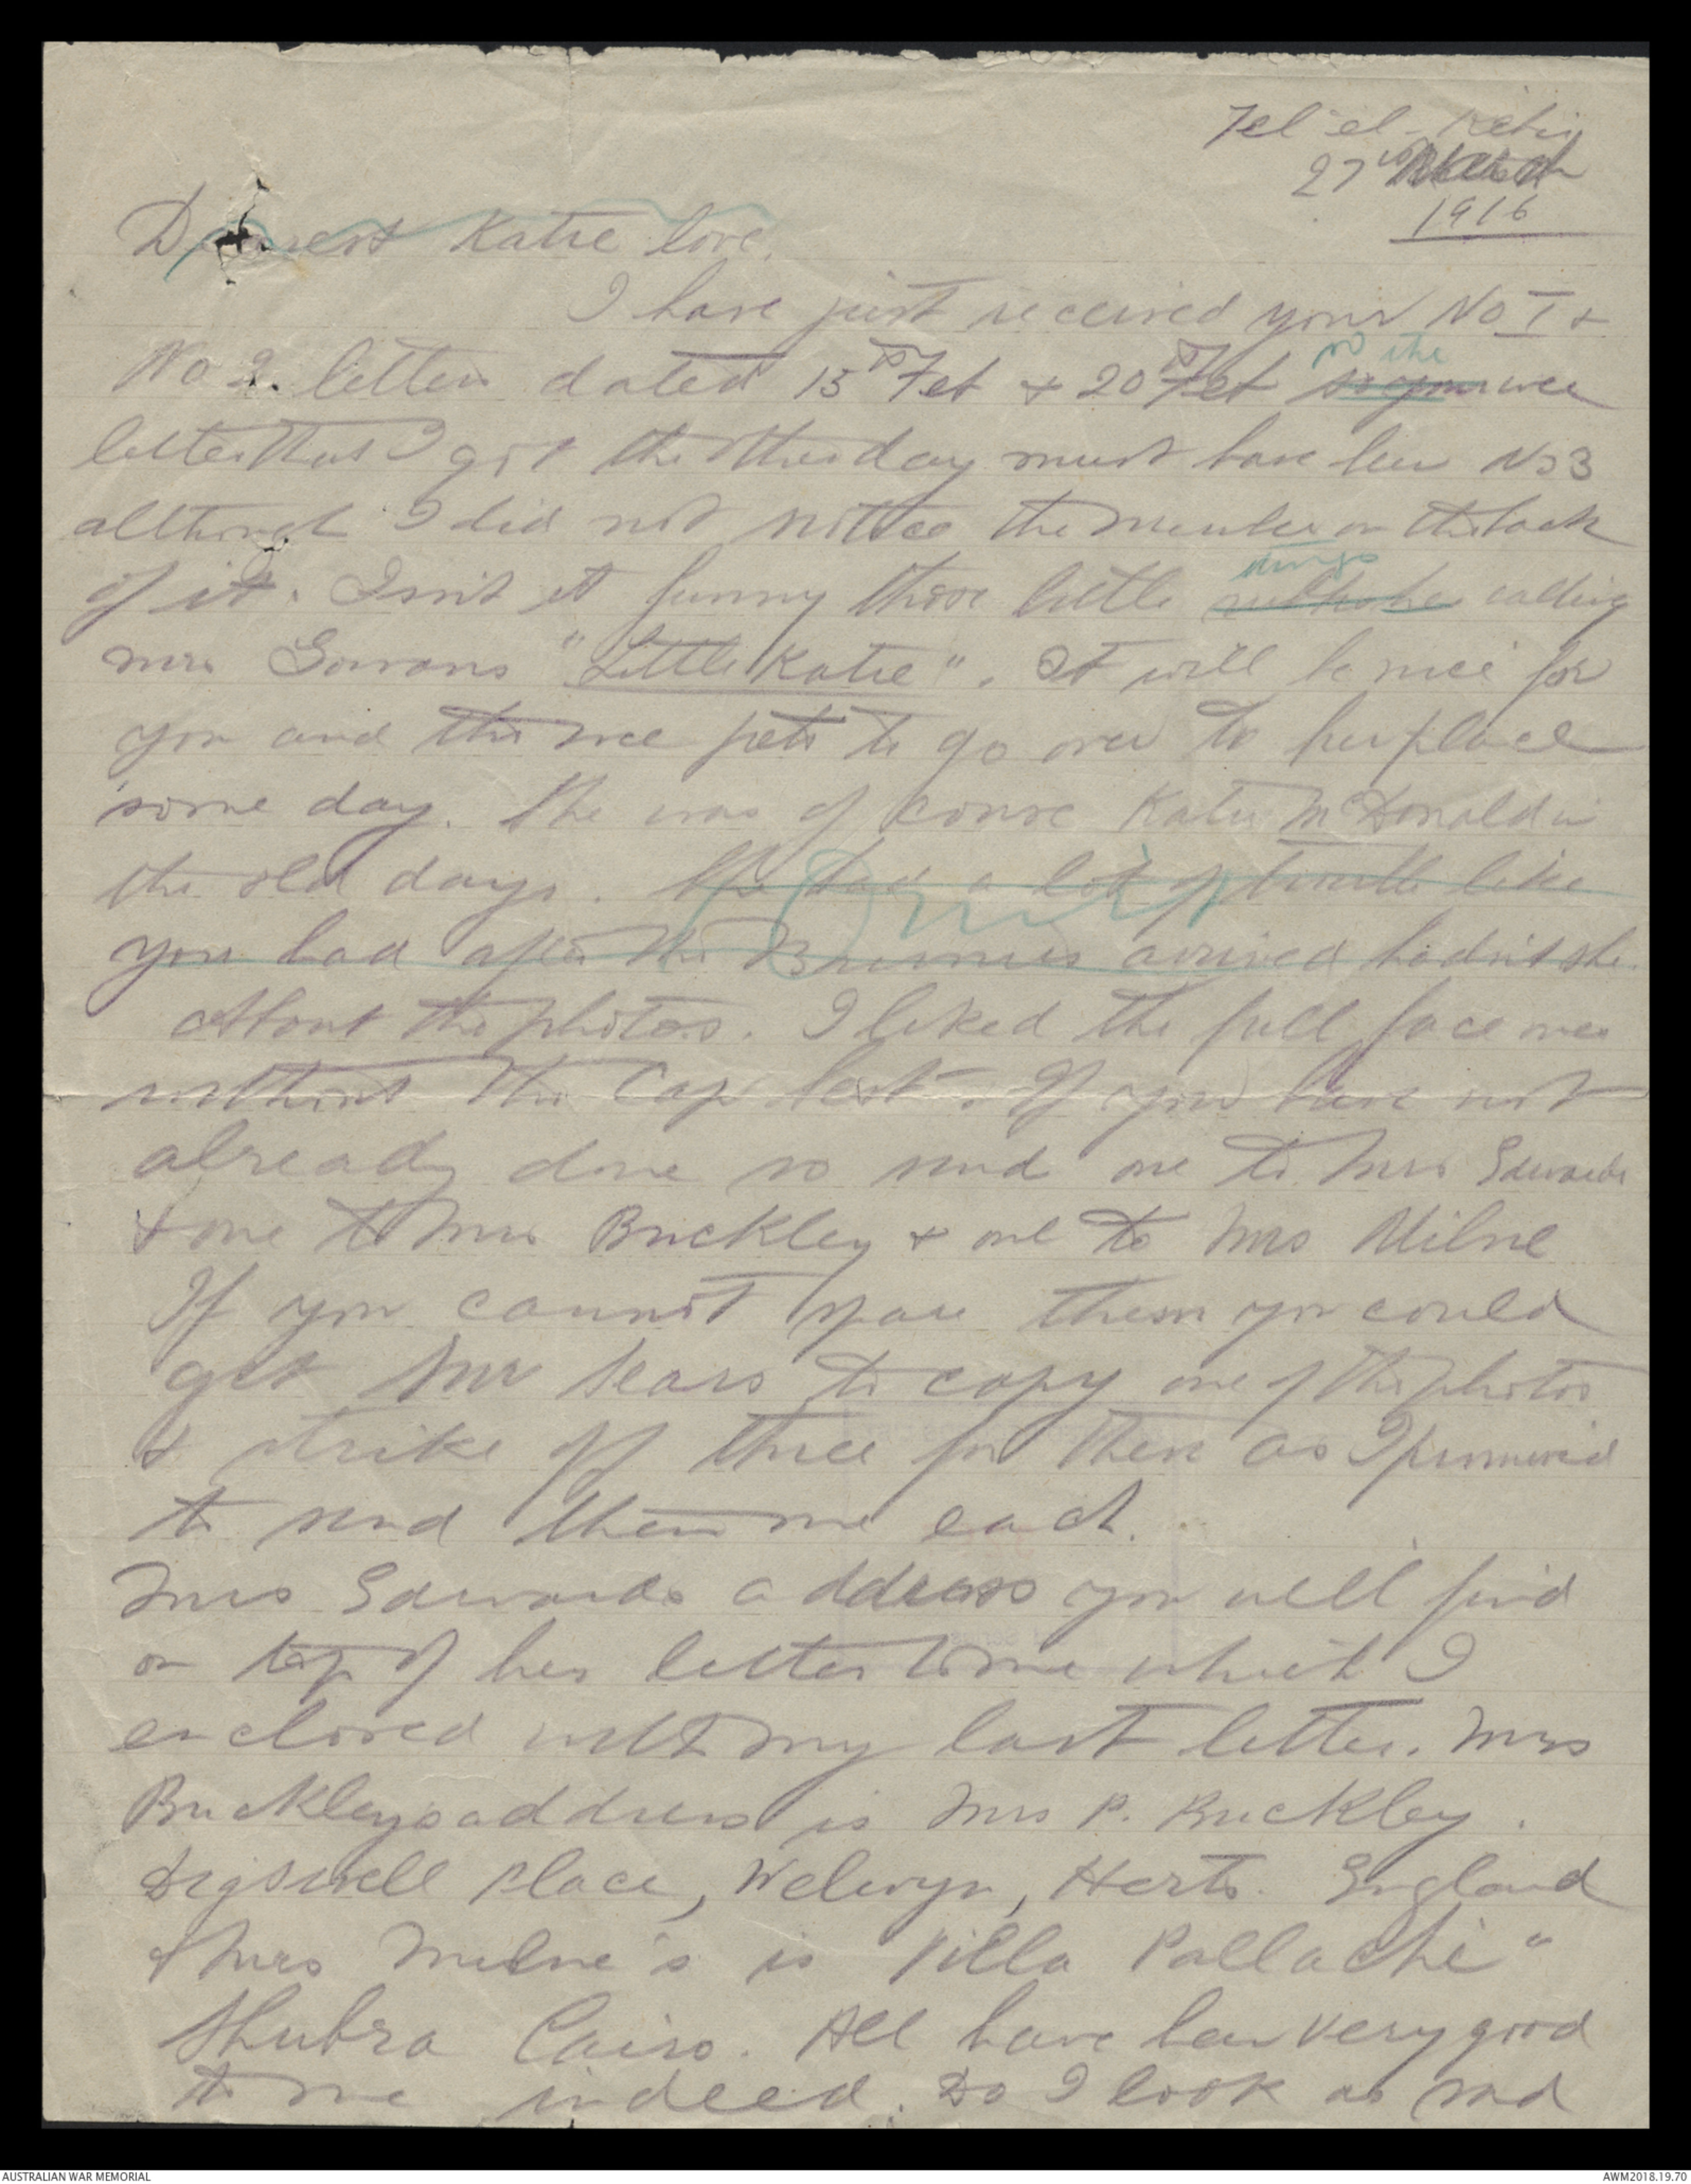 Tel-el-Kebir
27th March
1916
Dearest Katie love,
I have just received your No I &
No 2. letters dated 15th Feb & 20th Feb so the wee
letter that I got the other day must have been No 3
although I did not notice the number on the back
of it. Isn't it funny those little things calling
Mrs Gowans "Little Katie". It will be nice for
you and the wee pets to go over to her place
some day. She was of course Katie McDonald in
the old days. She had a lot of trouble like
you had after the arrived hadn't she.
About the photos. I liked the full face one
without the Cap best. If you have not
already done so send one to Mrs Edwards
& one to Mrs Buckley & one to Mrs Milne
If you cannot spare them you could
get Mr Sears to copy one of the photos
& strike off three for them as I promised
to send them one each.
Mrs Edwards address you will find
on top of her letter to me which I
enclosed with my last letter. Mrs
Buckleys address is Mrs P. Buckley.
Digswell Place, Welwyn, Herts. England
& Mrs Milne's is Villa Pallachi"
Shubra Cairo. All have been very good
to me indeed. Do I look as sad